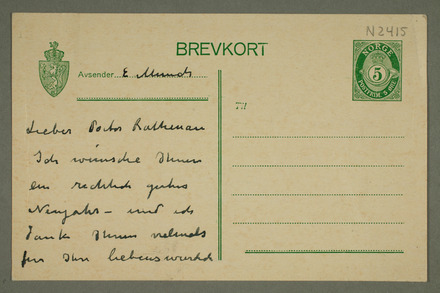 N 2415
BREVKORT
NORGE
5
Avsender E Munch
Til
Lieber Doctor Rathenau
Ich wünsche Ihnen
ein recht gutes
Neujahr – und ich
Danke Ihnen vielmals
für Ihr liebenswürd